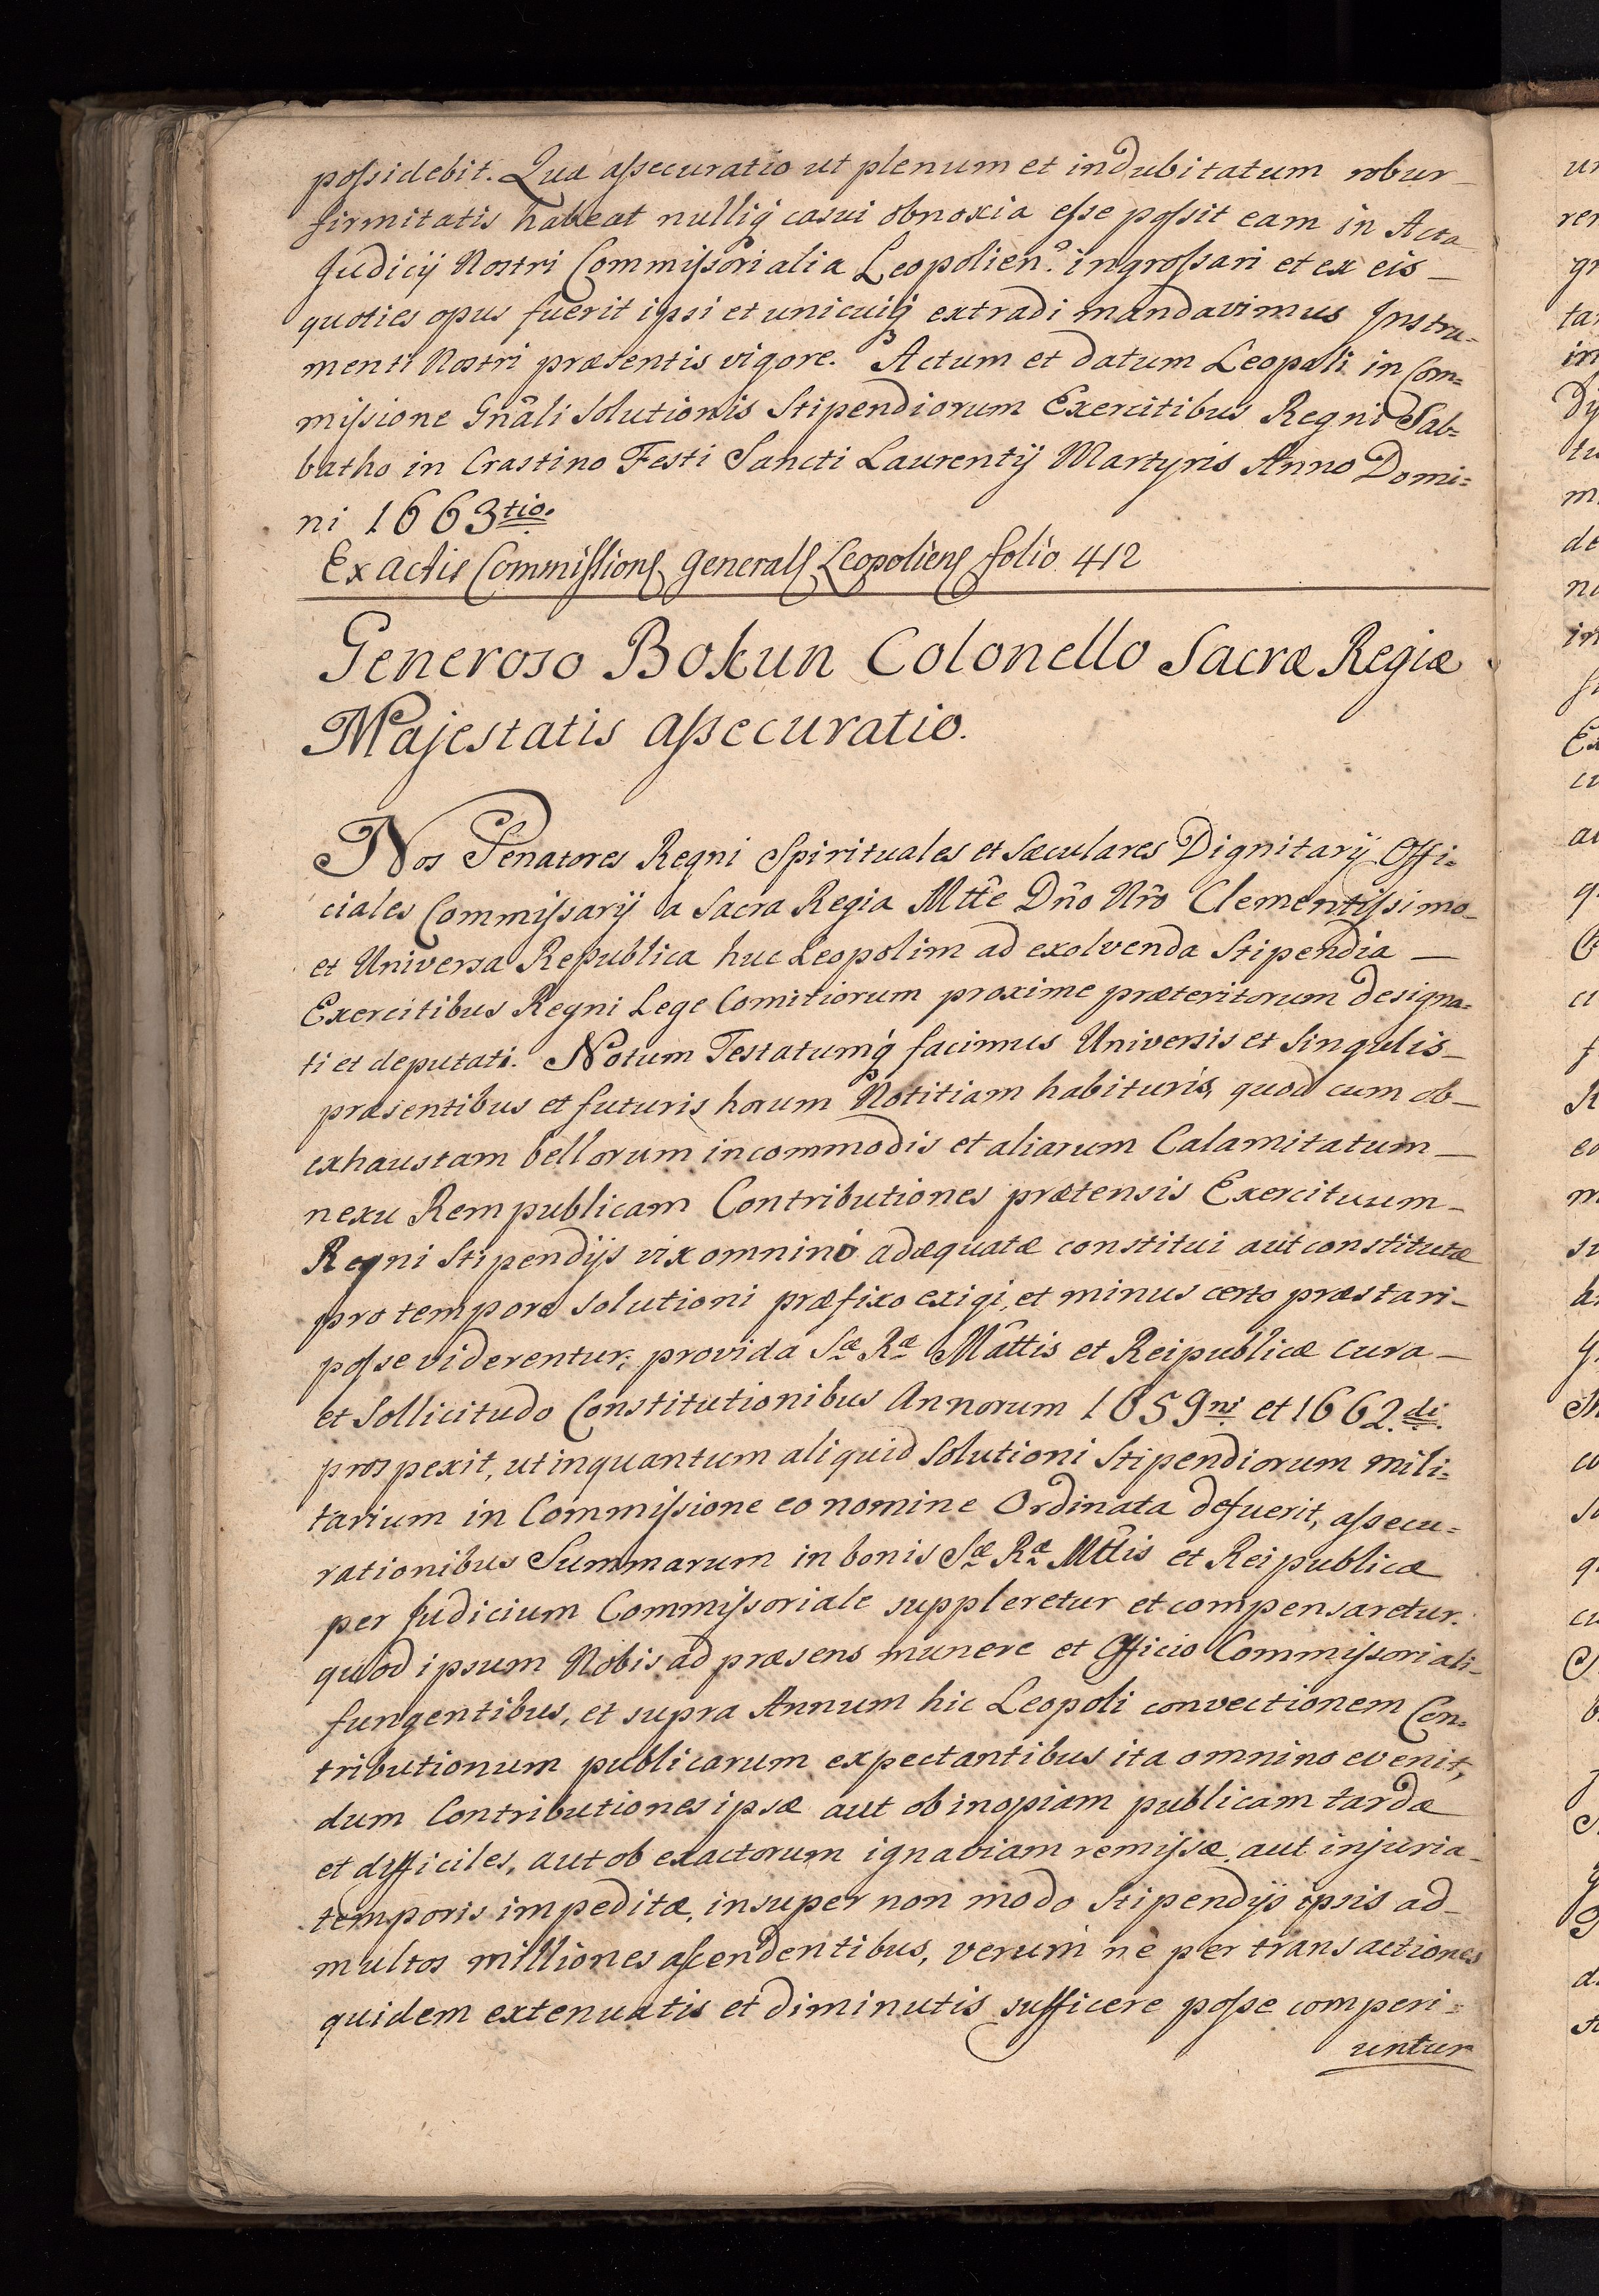 poſsidebit. Qua aſsecuratio ut plenum et indubitatum robur
firmitatis habeat nulliq́ casui obnoxia eſse poſsit eam in Acta
Judicij Nostri Commiſsorialia Leopolien: ingroſsari et ex eis
quoties opus fuerit ipsi et unicuiq́ extradi mandavimus Instru=
menti Nostri præsentis vigore. Actum et datum Leopoli in Com=
miſsione Gñali Solutionis Stipendiorum Exercitibus Regni Sab=
batho in Crastino Festi Sancti Laurentij Martyris Anno Domi=
ni 1663tio.
Ex actis Commiſsions Generals Leopoliens folio 412
Generoso Bokun Colonello Sacræ Regiæ
Majestatis aſsecuratio.
Nos Senatores Regni Spirituales et Sæculares Dignitarij Offi=
ciales Commiſsarij a Sacra Regia Mtte Dño Nro Clementiſsimo
et Universa Republica huc Leopolim ad exolvenda Stipendia
Exercitibus Regni Lege Comitiorum proxime præteritorum designa=
ti et deputati. Notum Testatumq́ facimus Universis et Singulis
præsentibus et futuris horum Notitiam habituris, quod cum ob
exhaustam bellorum incommodis et aliarum Calamitatum
nexu Rempublicam Contributiones prætensis Exercituum
Regni Stipendijs vix omnino adæquatæ constitui aut constitutæ
pro tempore solutioni præfixo exigi, et minus certo præstari
poſse viderentur; provida Sæ Ræ Mattis et Reipublicæ cura
et Sollicitudo Constitutionibus Annorum 1659ni et 1662.di.
prospexit, ut inquantum aliquid Solutioni Stipendiorum mili=
tarium in Commiſsione eo nomine Ordinata defuerit, aſsecu=
rationibus Summarum in bonis Sæ Ræ Mttis et Reipublicæ
per Judicium Commiſsoriale suppleretur et compensaretur.
quod ipsum Nobis ad præsens munere et Officio Commiſsoriali
fungentibus, et supra Annum hic Leopoli convectionem Con=
tributionum publicarum expectantibus ita omnino evenit,
dum Contributiones ipsæ aut ob inopiam publicam tardæ
et difficiles, aut ob exactorum ignaviam remiſsæ, aut injuria
temporis impeditæ, insuper non modo Stipendijs ipsis ad
multos milliones aſcendentibus, verum nè per transactiones
quidem extenuatis et diminutis sufficere poſse comperi=
untur